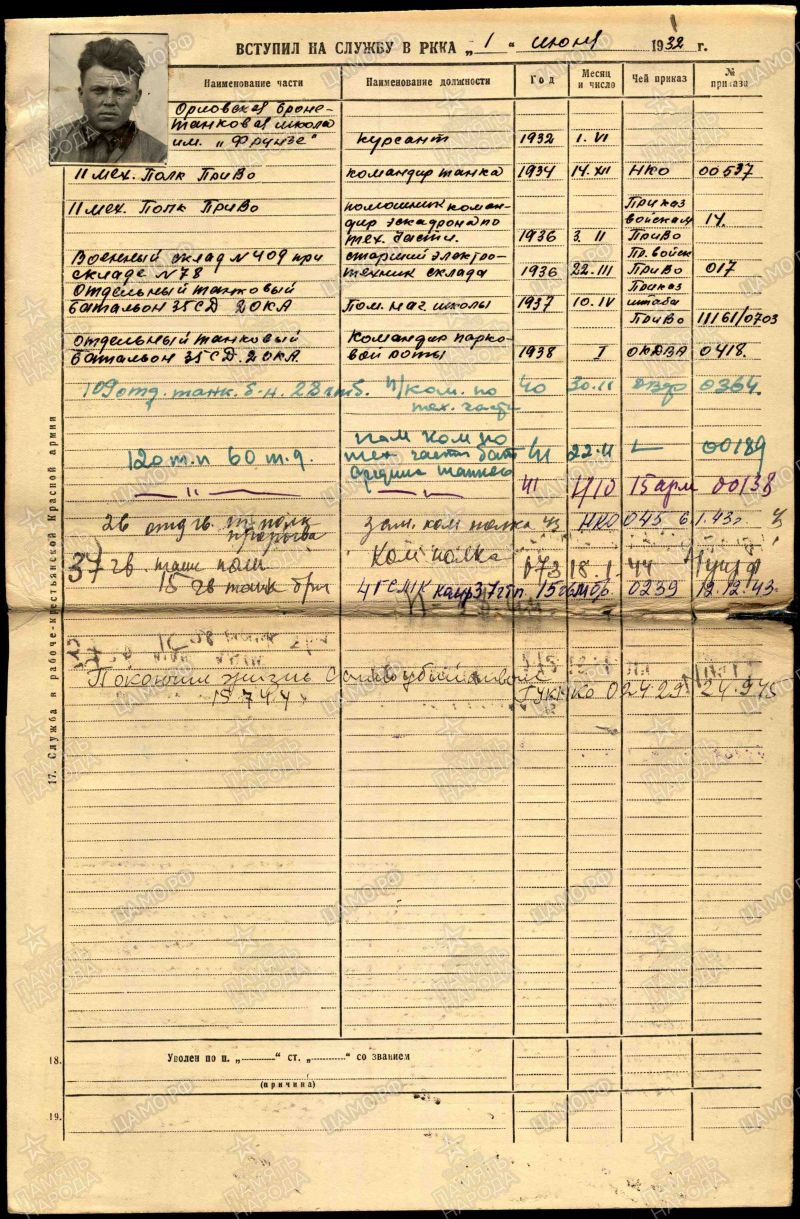 ВСТУПИЛ НА СЛУЖБУ В РККА „1“ июня 1932 г.
Наименование части Наименование должности Год Месяц и число Чей приказ № приказа
Орловская броне-
танковая школа
им. „Фрунзе“ курсант 1932 1.VI
II мех. Полк ПриВо командир танка 1934 14.XI НКО 00537
II мех. Полк ПриВо помошник коман-
дир эскадрона по
тех. части. 1936 3.II
Приказ
войскам
ПриВо 14.
Военный склад №409 при
складе №78 старший электро-
техник склада 1936 22.III
Пр. войск
ПриВо 017
Отдельный танковый
батальон 35СД 20КА Пом. нач. школы 1937 10.IV
Приказ
штаба
ПриВо 11161/0703
отдельный танковый
батальон 35СД. 20КА. Командир парко-
вой роты 1938 I ОКДВА 0418.
109 отд. танк. б-н. 28 П/ком. по
тех. части 40 30.II 0364.
120 т.п 60 т.д. пом ком по
тех части бат
средних танков 41 22.II 00189
— „ — — „ — 41 4/10 15 арм 00138
26 отд гв. т полк
прорыва зам. ком полка 43 НКО 045 6.1.43г
37 гв. танк полк Ком полка 073 18.1 44
15 гв танк бриг 4ГСМК 37гтп. 15 0239 12.12.43
Покончил жизнь самоубийством
15.7.44 ГУКНКО 02429 24.9.45
17. Служба в рабоче-крестьянской Красной армии
18. Уволен по п. „ “ ст. „ “ со званием
(причина)
19.
ЦАМО.РФ
ПАМЯТЬ НАРОДА